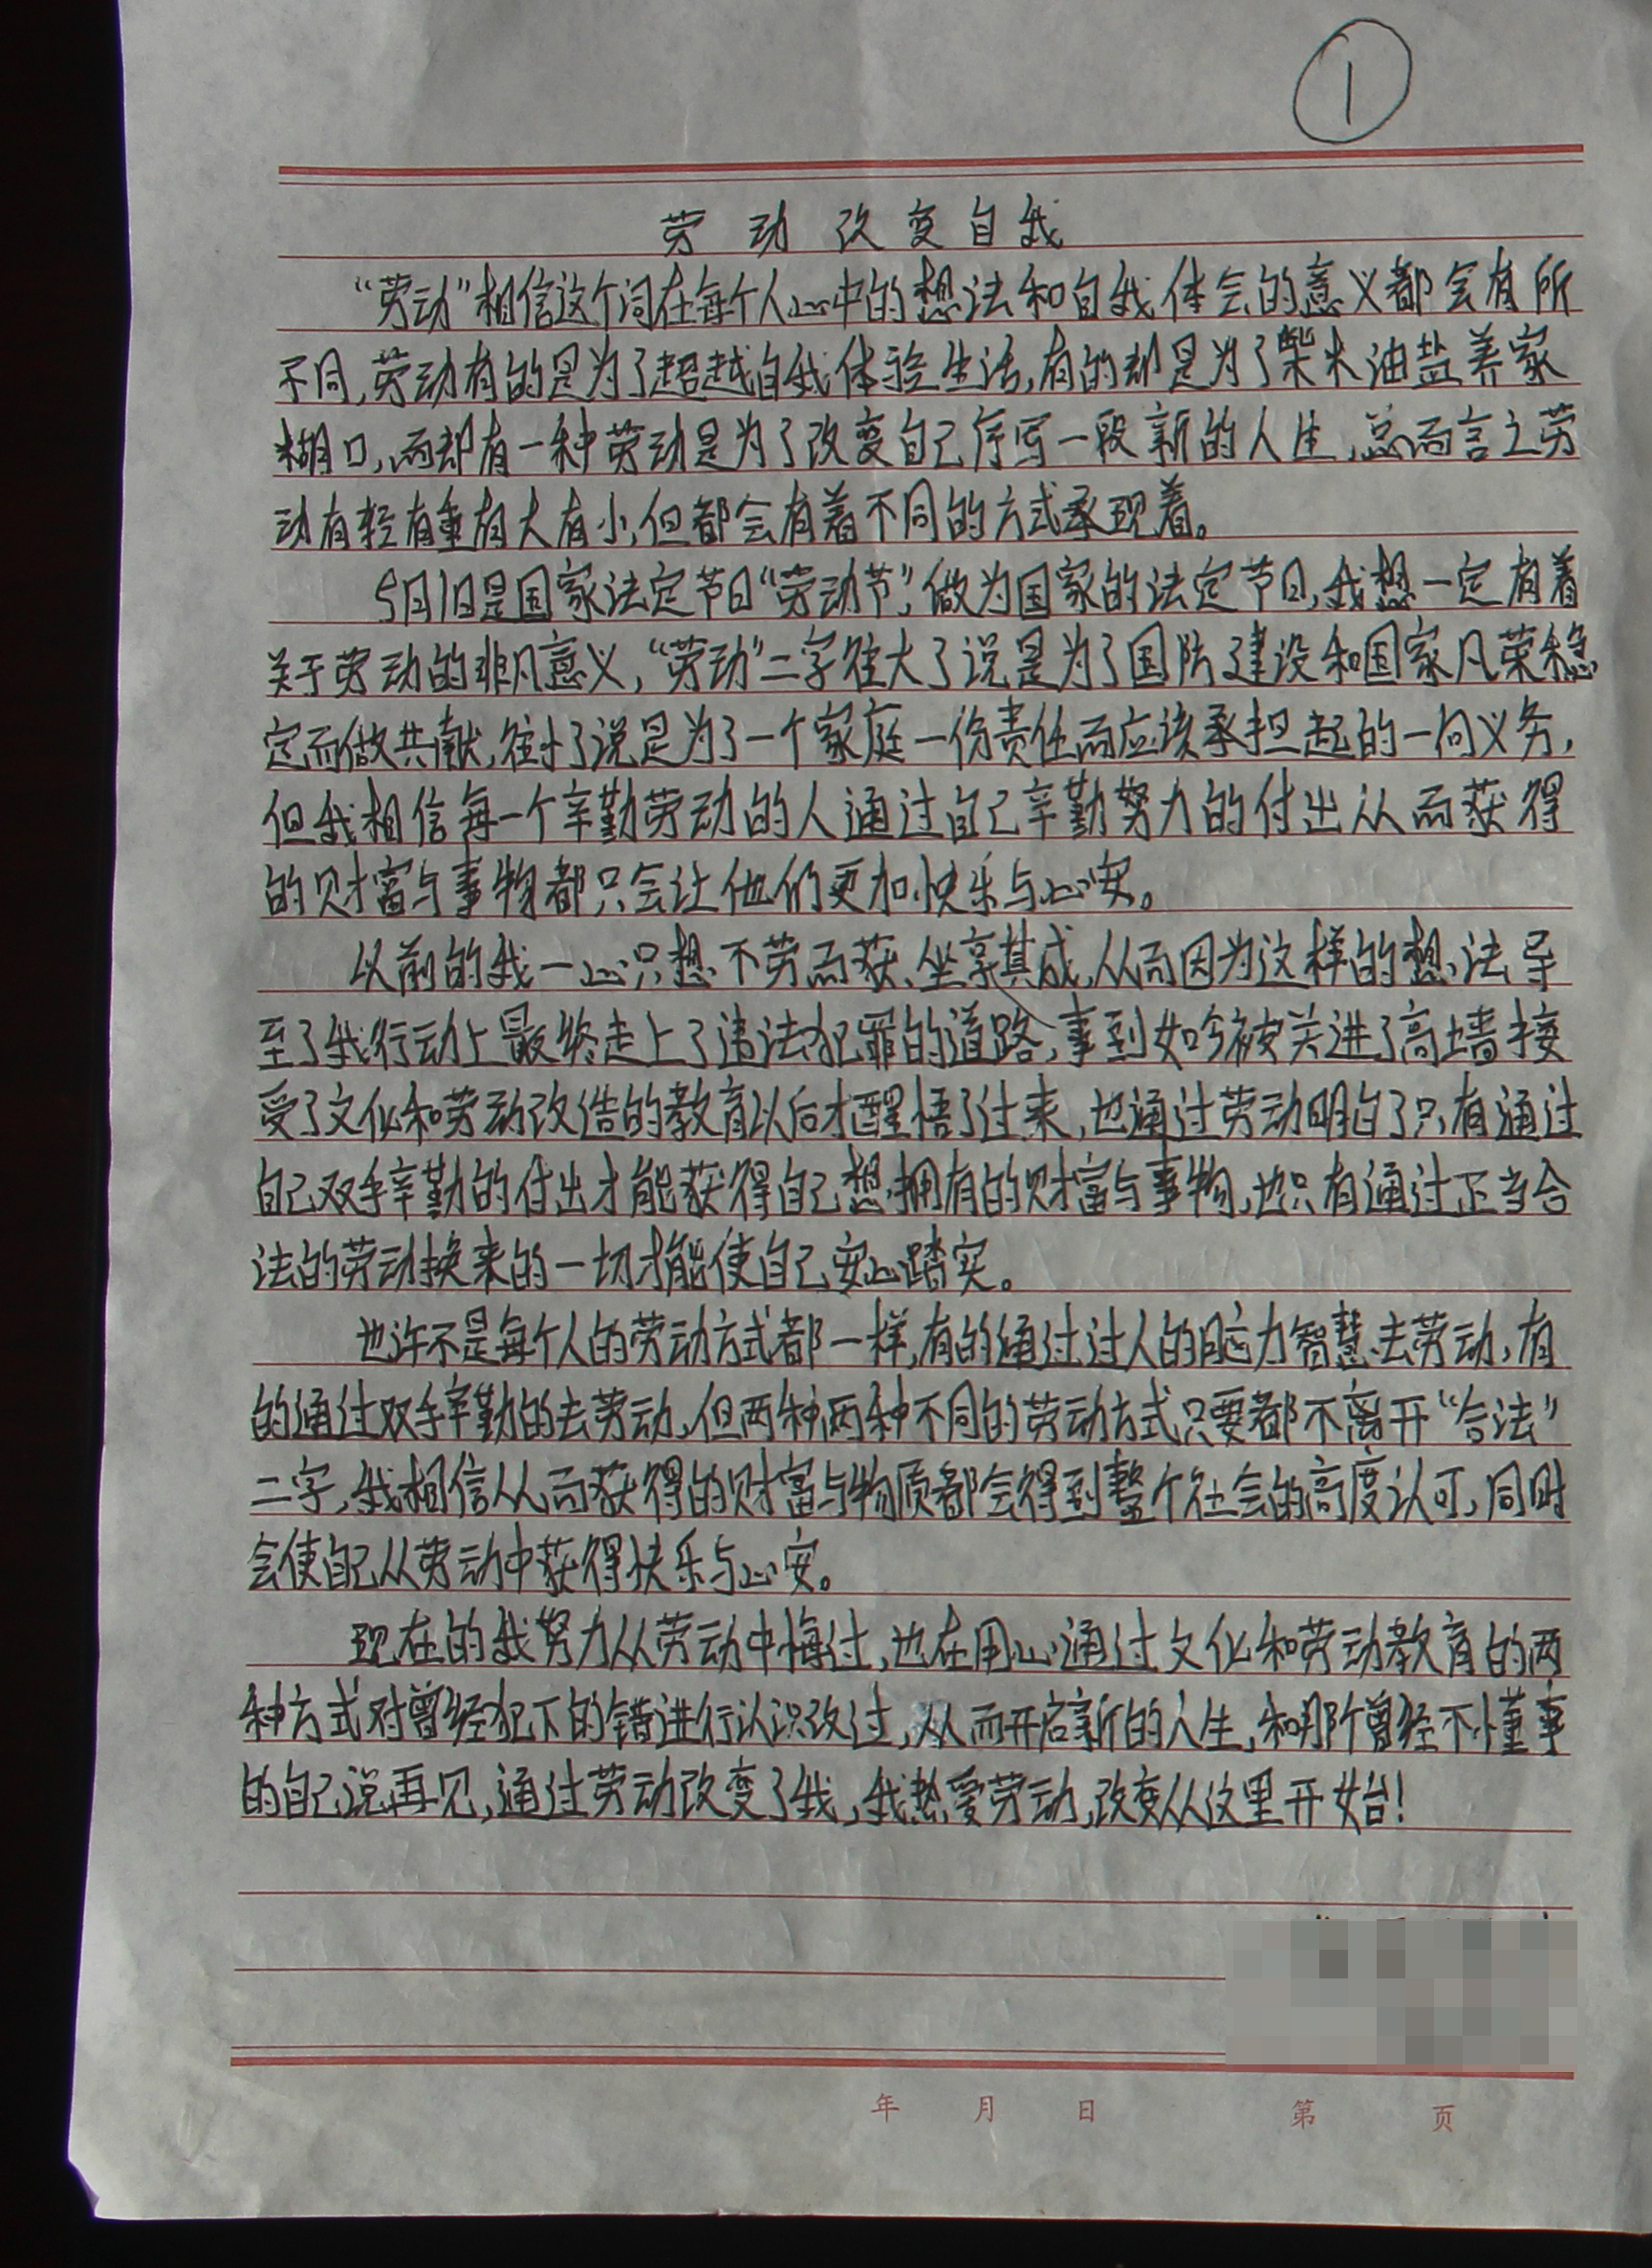 1
劳动改变自我
“劳动”相信这个词在每个人心中的想法和自我体会的意义都会有所
不同,劳动有的是为了超越自我体验生活,有的却是为了柴米油盐养家
糊口,而却有一种劳动是为了改变自己序写一段新的人生,总而言之劳
动有轻有重有大有小,但都会有着不同的方式承现着。
5月1日是国家法定节日“劳动节”,做为国家的法定节日,我想一定有着
关于劳动的非凡意义,“劳动”二字往大了说是为了国防建设和国家凡荣稳
定而做共献,往小了说是为了一个家庭一份责任而应该承担起的一向义务,
但我相信每一个辛勤劳动的人通过自己辛勤努力的付出从而获得
的财富与事物都只会让他们更加快乐与心安。
以前的我一心只想不劳而获、坐享其成,从而因为这样的想法导
至了我行动上最终走上了违法犯罪的道路,事到如今被关进了高墙接
受了文化和劳动改造的教育以后才醒悟了过来,也通过劳动明白了只有通过
自己双手辛勤的付出才能获得自己想拥有的财富与事物,也只有通过正当合
法的劳动换来的一切才能使自己安心踏实。
也许不是每个人的劳动方式都一样,有的通过过人的脑力智慧去劳动,有
的通过双手辛勤的去劳动,但两种两种不同的劳动方式只要都不离开“合法”
二字,我相信从而获得的财富与物质都会得到整个社会的高度认可,同时
会使自己从劳动中获得快乐与心安。
现在的我努力从劳动中悔过,也在用心通过文化和劳动教育的两
种方式对曾经犯下的错进行认识改过,从而开启新的人生,和那个曾经不懂事
的自己说再见,通过劳动改变了我,我热爱劳动,改变从这里开始!
年 月 日 第 页